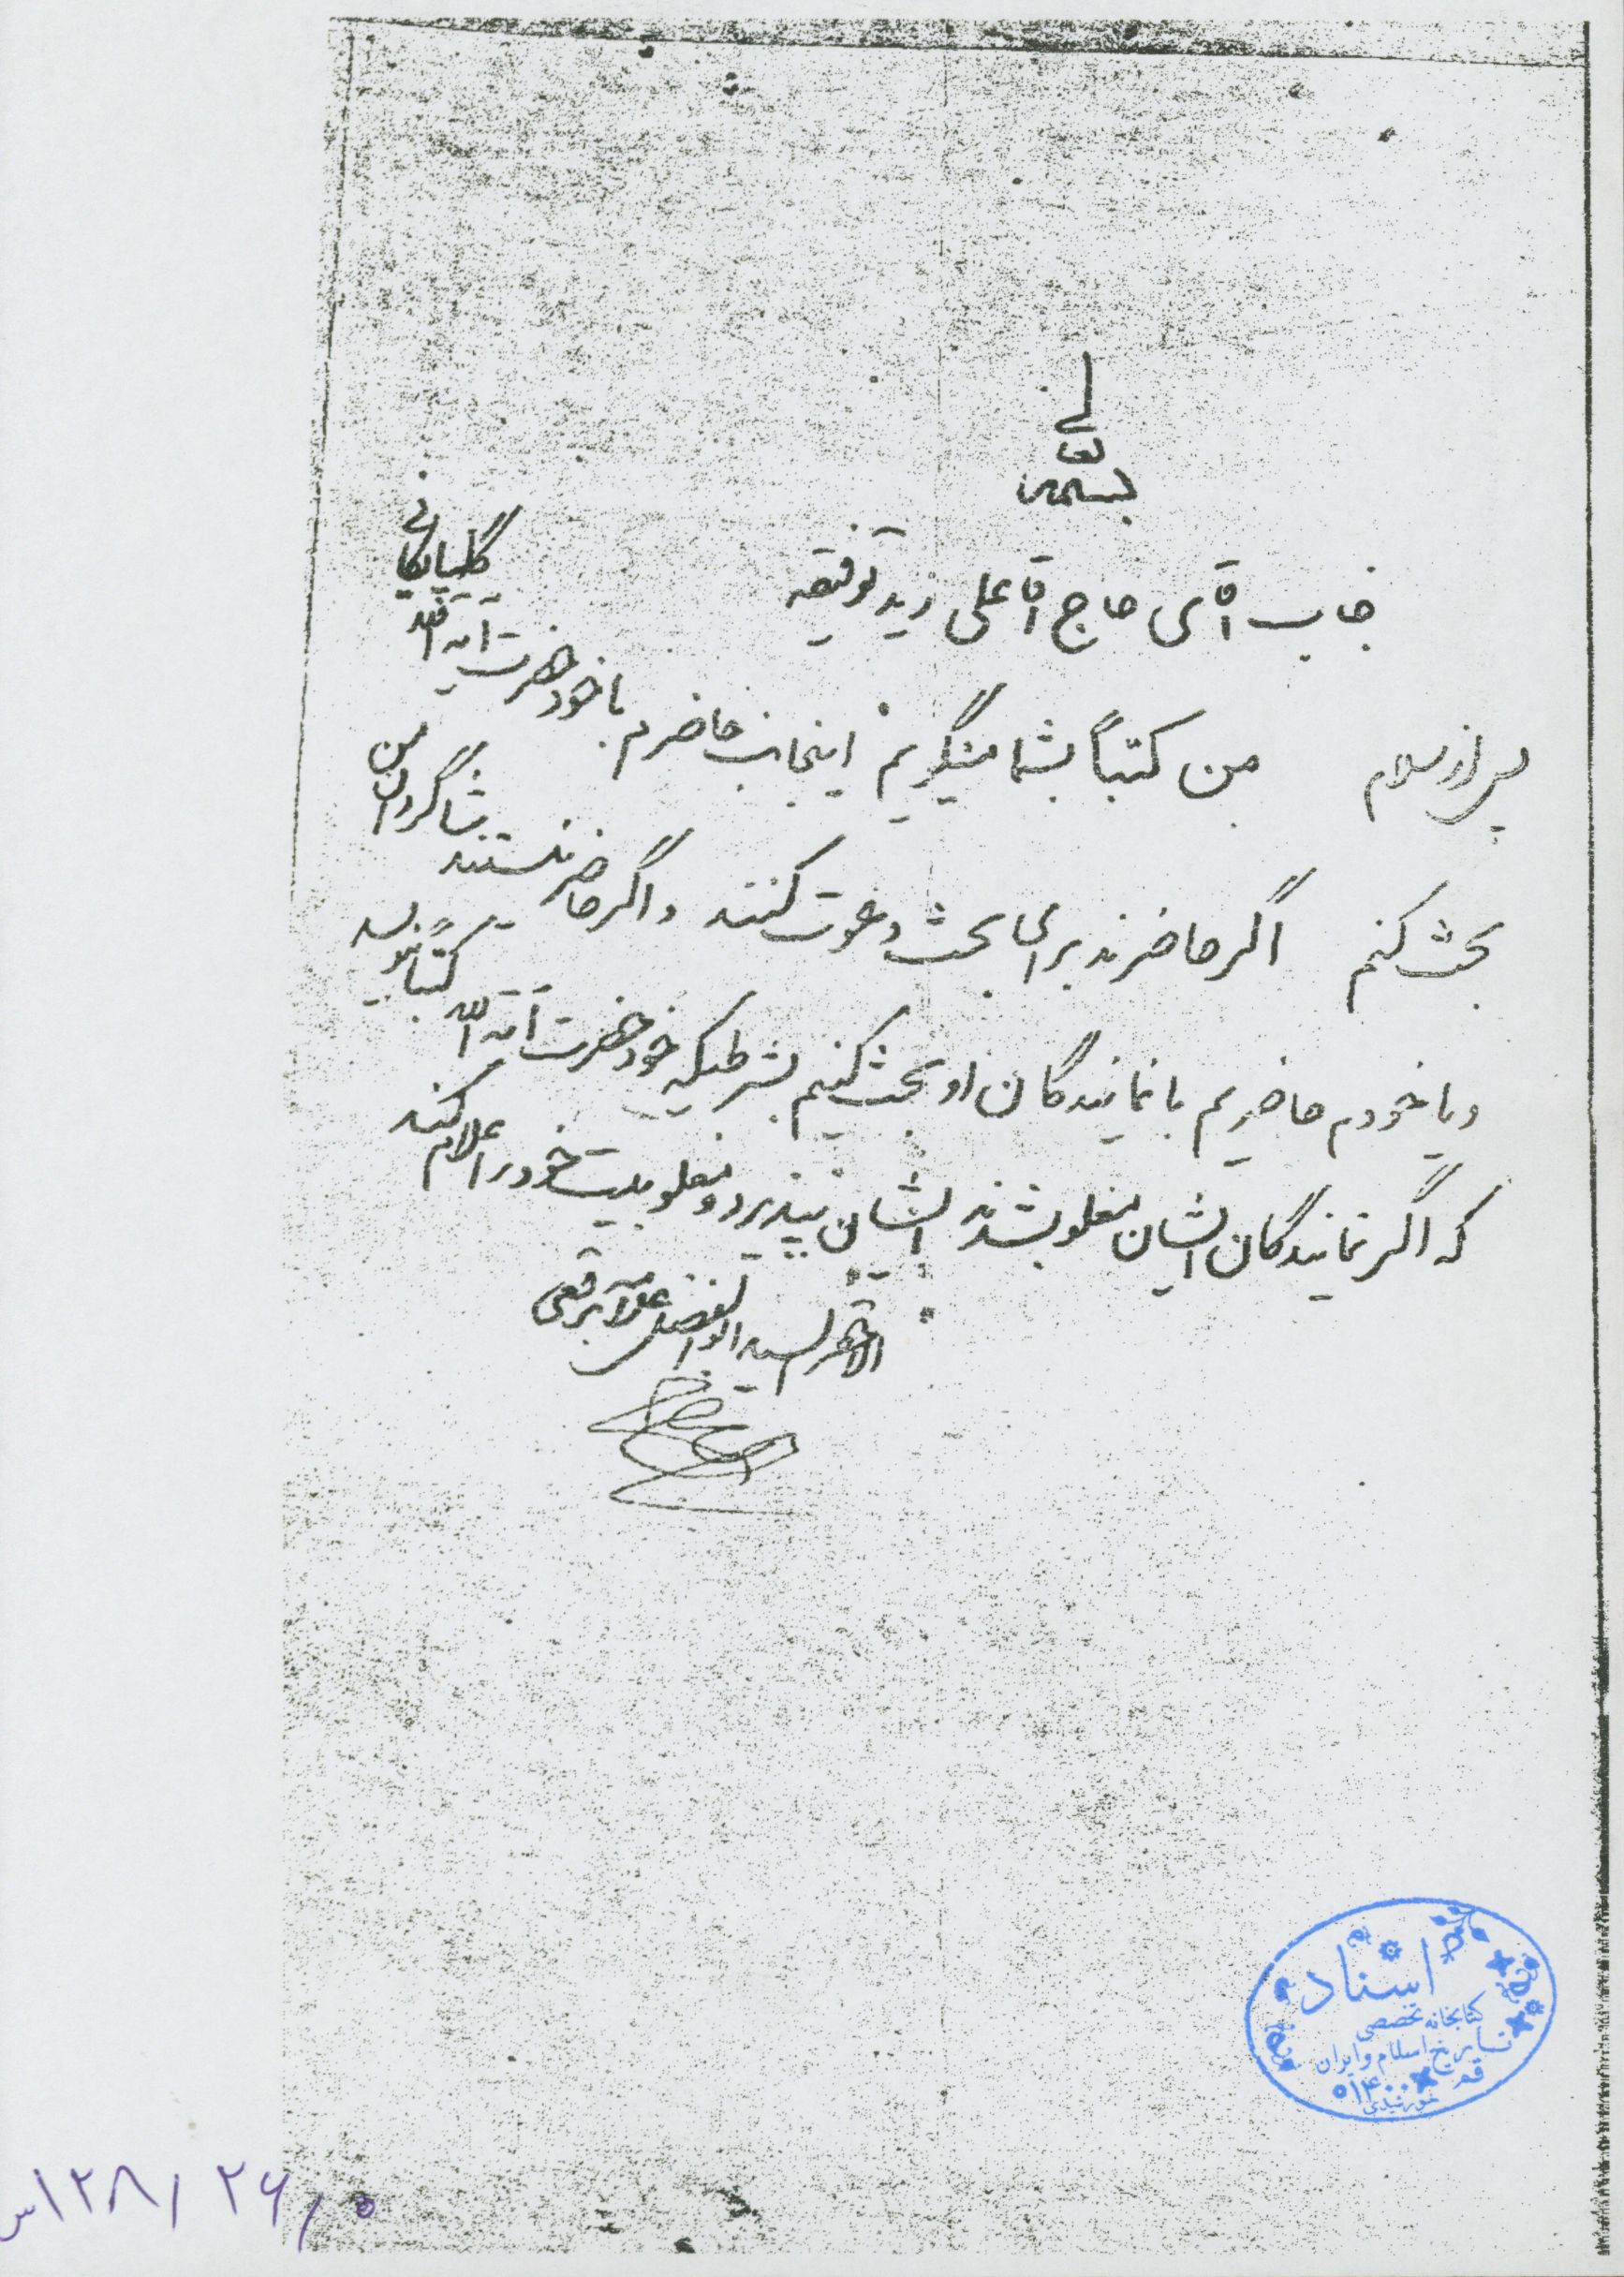 بسمه تعالی
جناب آقای حاج آقا علی زید توفیقه
پس از سلام من کتباً بشما میگویم اینجانب حاضرم با خود حضرت آیة الله گلپایگانی
بحث کنم اگر حاضرند برای بحث دعوت کنند و اگر حاضر نیستند شاگردان من
و یا خودم حاضریم با نمایندگان او بحث کنیم بشرطیکه خود حضرت آیة الله کتباً بنویسد
که اگر نمایندگان ایشان مغلوب شدند ایشان بپذیرد و مغلوبیت خود را اعلام کند
الاحقر السید ابوالفضل علامه برقعی
اسناد
کتابخانه تخصصی
تاریخ اسلام و ایران
قم
۱۴۰۰
خورشیدی
۵ / ۲۶ / ۱۲۸س